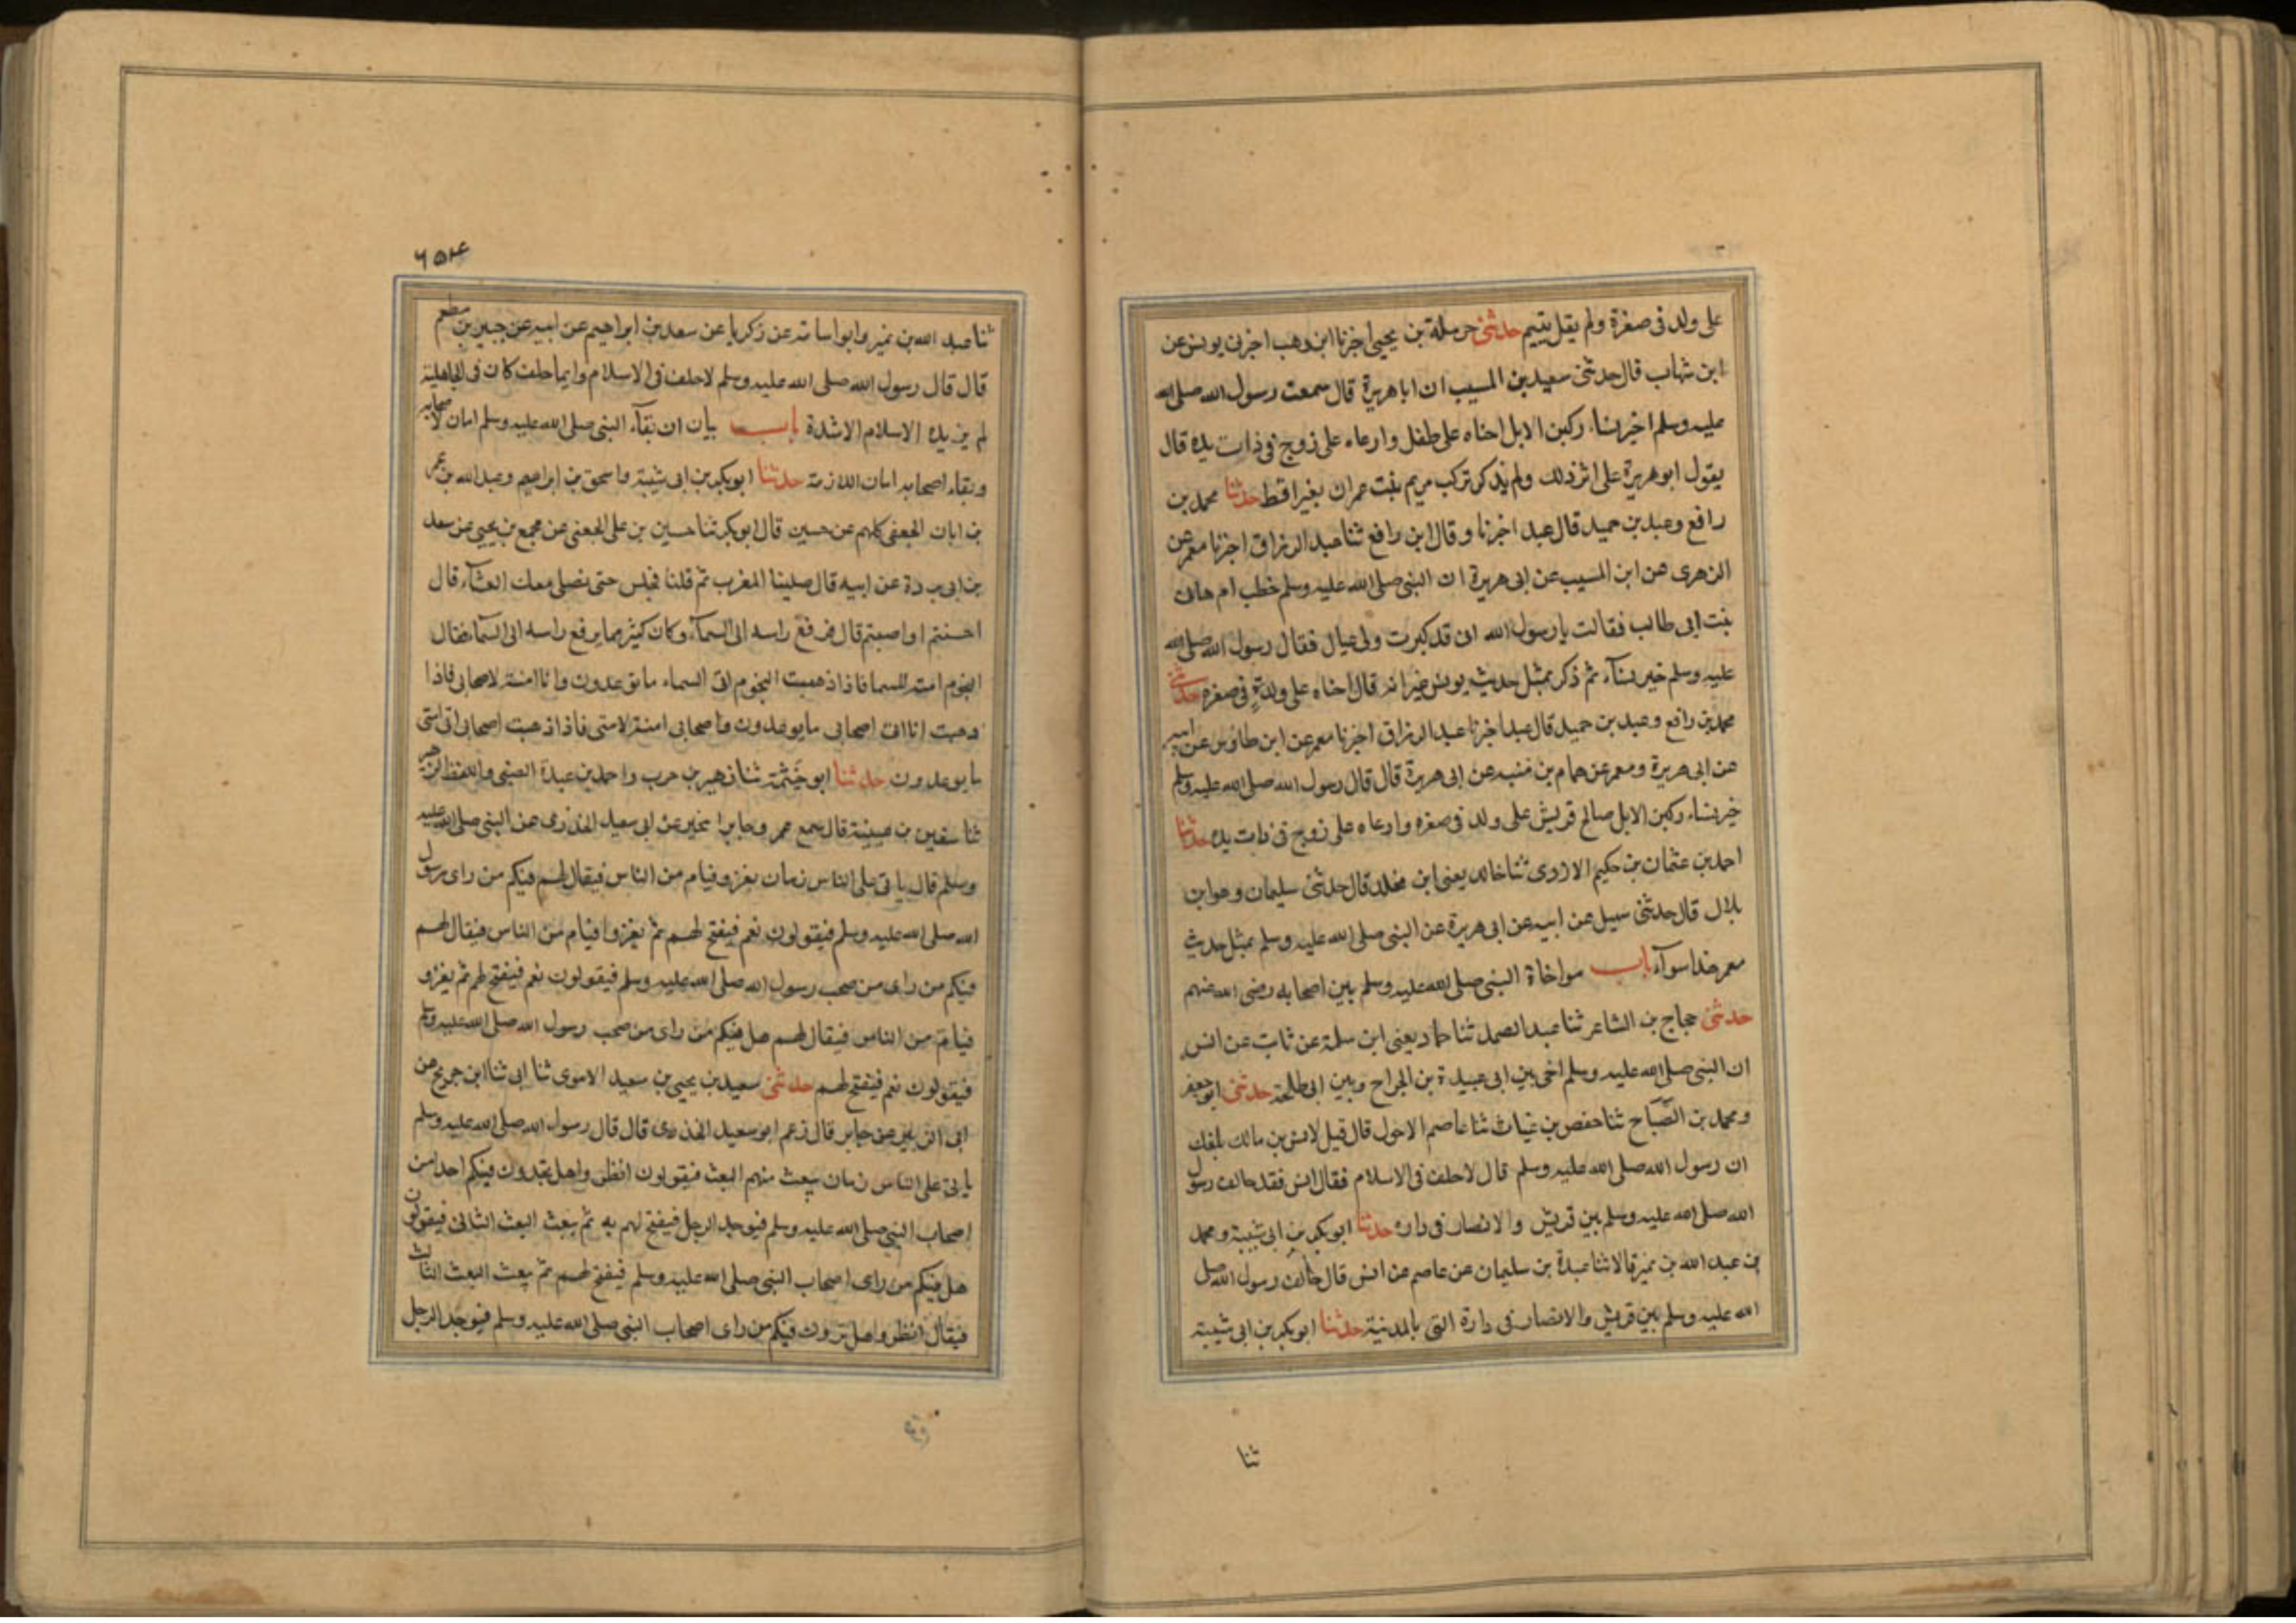 على ولد فى صغرة ولم يقل يتيم حدثنى حرملة بن يحيى اخبرنا ابن وهب اخبرنى يونس عن
ابن شهاب قال حدثنى سعيد بن المسيب ان ابا هريرة قال سمعت رسول الله صلى الله
عليه وسلم اخير نساء ركبن الابل احناه على طفل وارعاه على زوج فى ذات يده قال
يقول ابو هريرة على اثر ذلك ولم تركب مريم بنت عمران بغيرا قط حدثنا محمد بن
رافع وعبد بن حميد قال عبد اخبرنا وقال ابن رافع ثنا عبد الرزاق اخبرنا معمر عن
الزهرى عن ابن المسيب عن ابى هريرة ان النبى صلى الله عليه وسلم خطب ام هانى
بنت ابى طالب فقالت يا رسول الله انى قد كبرت ولى عيال فقال رسول الله صلى الله
عليه وسلم خير نسآء ثم ذكر بمثل حديث يونس غير انه قال احناه على ولدة فى صغره حدثنى
محمد بن رافع وعبد بن حميد قال عبد اخبرنا عبد الرزاق اخبرنا معمر عن ابن طاؤس عن ابيه
عن ابى هريرة ومعمر عن همام بن منبه عن ابى هريرة قال قال رسول الله صلى الله عليه وسلم
خير نساء ركبن الابل صالح قريش على ولد فى صغره وارعاه على زوج فى ذات يده حدثنا
احمد بن عثمان بن حكيم الاودى ثنا خالد يعنى ابن مخلد قال حدثنى سليمان وهو ابن
بلال قال حدثنى سهيل عن ابيه عن ابى هريرة عن النبى صلى الله عليه وسلم بمثل حديث
معمر هذا سوآء باب مواخاة النبى صلى الله عليه وسلم بين اصحابه رضى الله عنهم
حدثنى حجاج بن الشاعر ثنا عبد الصمد ثنا حماد يعنى ابن سلمة عن ثابت عن انس
ان النبى صلى الله عليه وسلم اخى بين ابى عبيدة بن الجراح وبين ابى طلحة حدثنى ابو جعفر
ومحمد بن الصَّبَاح ثنا حفص بن غياث ثنا عاصم الاحول قال قيل لانس بن مالك بلغك
ان رسول الله صلى الله عليه وسلم قال لا حلف فى الاسلام فقال انس فقد حالف رسول
الله صلى الله عليه وسلم بين قريش والانصار فى داره حدثنا ابو بكر بن ابى شيبة ومحمد
بن عبد الله بن نمير قالا ثنا عبدة بن سليمان عن عاصم عن انس قال حالف رسول الله صلى
الله عليه وسلم بين قريش والانصار فى دارة التى بالمدينة حدثنا ابو بكر بن ابى شيبة
ثنا
ثنا عبد الله بن نمير وابو اسامة عن زكريا عن سعد بن ابراهيم عن ابيه عن جبير بن مطعم
قال قال رسول الله صلى الله عليه وسلم لا حلف فى الاسلام وايما حلف كان فى الجاهلية
لم يزيده الاسلام الا شدة باب بيان ان بقآء النبى صلى الله عليه وسلم امان لاصحابه
وبقاء اصحابه امان للازمة حدثنا ابو بكر بن ابى شيبة واسحق بن ابراهيم وعبد الله بن عمر
بن ابان الجعفى كلهم عن حسين قال ابو بكر ثنا حسين بن على الجعفى عن مجمع بن يحيى عن سعد
بن ابى بردة عن ابيه قال صلينا المغرب ثم قلنا نجلس حتى نصلى معك العشآء قال
احسنتم او اصبتم قال فرفع راسه الى السمآء وكان كثيرا مما يرفع راسه الى السمآء فقال
النجوم امنة للسما فاذا ذهبت النجوم اتى السماء ما توعدون وانا امنة لاصحابى فاذا
ذهبت انا اتى اصحابى ما يوعدون واصحابى امنة لامتى فاذا ذهبت اصحابى اتى امتى
ما يوعدون حدثنا ابو خَيْثَمة ثنا زهير بن حرب واحمد بن عبدة الضبى واللفظ لزهير
ثنا سفين بن عيينة قال سمع عمرو جابرا يخبر عن ابى سعيد الخدرى عن النبى صلى الله عليه
وسلم قال ياتى على الناس زمان يغزو فيام من الناس فيقال لهم فيكم من راى رسول
الله صلى الله عليه وسلم فيقولون نعم فيفتح لهم ثم يغزوا فيام من الناس فيقال لهم
فيكم من راى من صحب رسول الله صلى الله عليه وسلم فيقولون نعم فيفتح لهم ثم يغزو
فيام من الناس فيقال لهم هل فيكم من راى من صحب رسول الله صلى الله عليه وسلم
فيقولون نعم فيفتح لهم حدثنى سعيد بن يحيى بن سعيد الاموى ثنا ابى ثنا ابن جريج عن
ابى الزبير عن جابر قال زعم ابو سعيد الخدرى قال قال رسول الله صلى الله عليه وسلم
ياتى على الناس زمان يبعث منهم البعث فيقولون انظروا هل تجدون فيكم احدا من
اصحاب النبى صلى الله عليه وسلم فيوجد الرجل فيفتح لهم به ثم يبعث البعث الثانى فيقولون
هل فيكم من راى اصحاب النبى صلى الله عليه وسلم فيفتح لهم ثم يبعث البعث الثالث
فيقال انظروا هل ترون فيكم من راى اصحاب النبى صلى الله عليه وسلم فيوجد الرجل